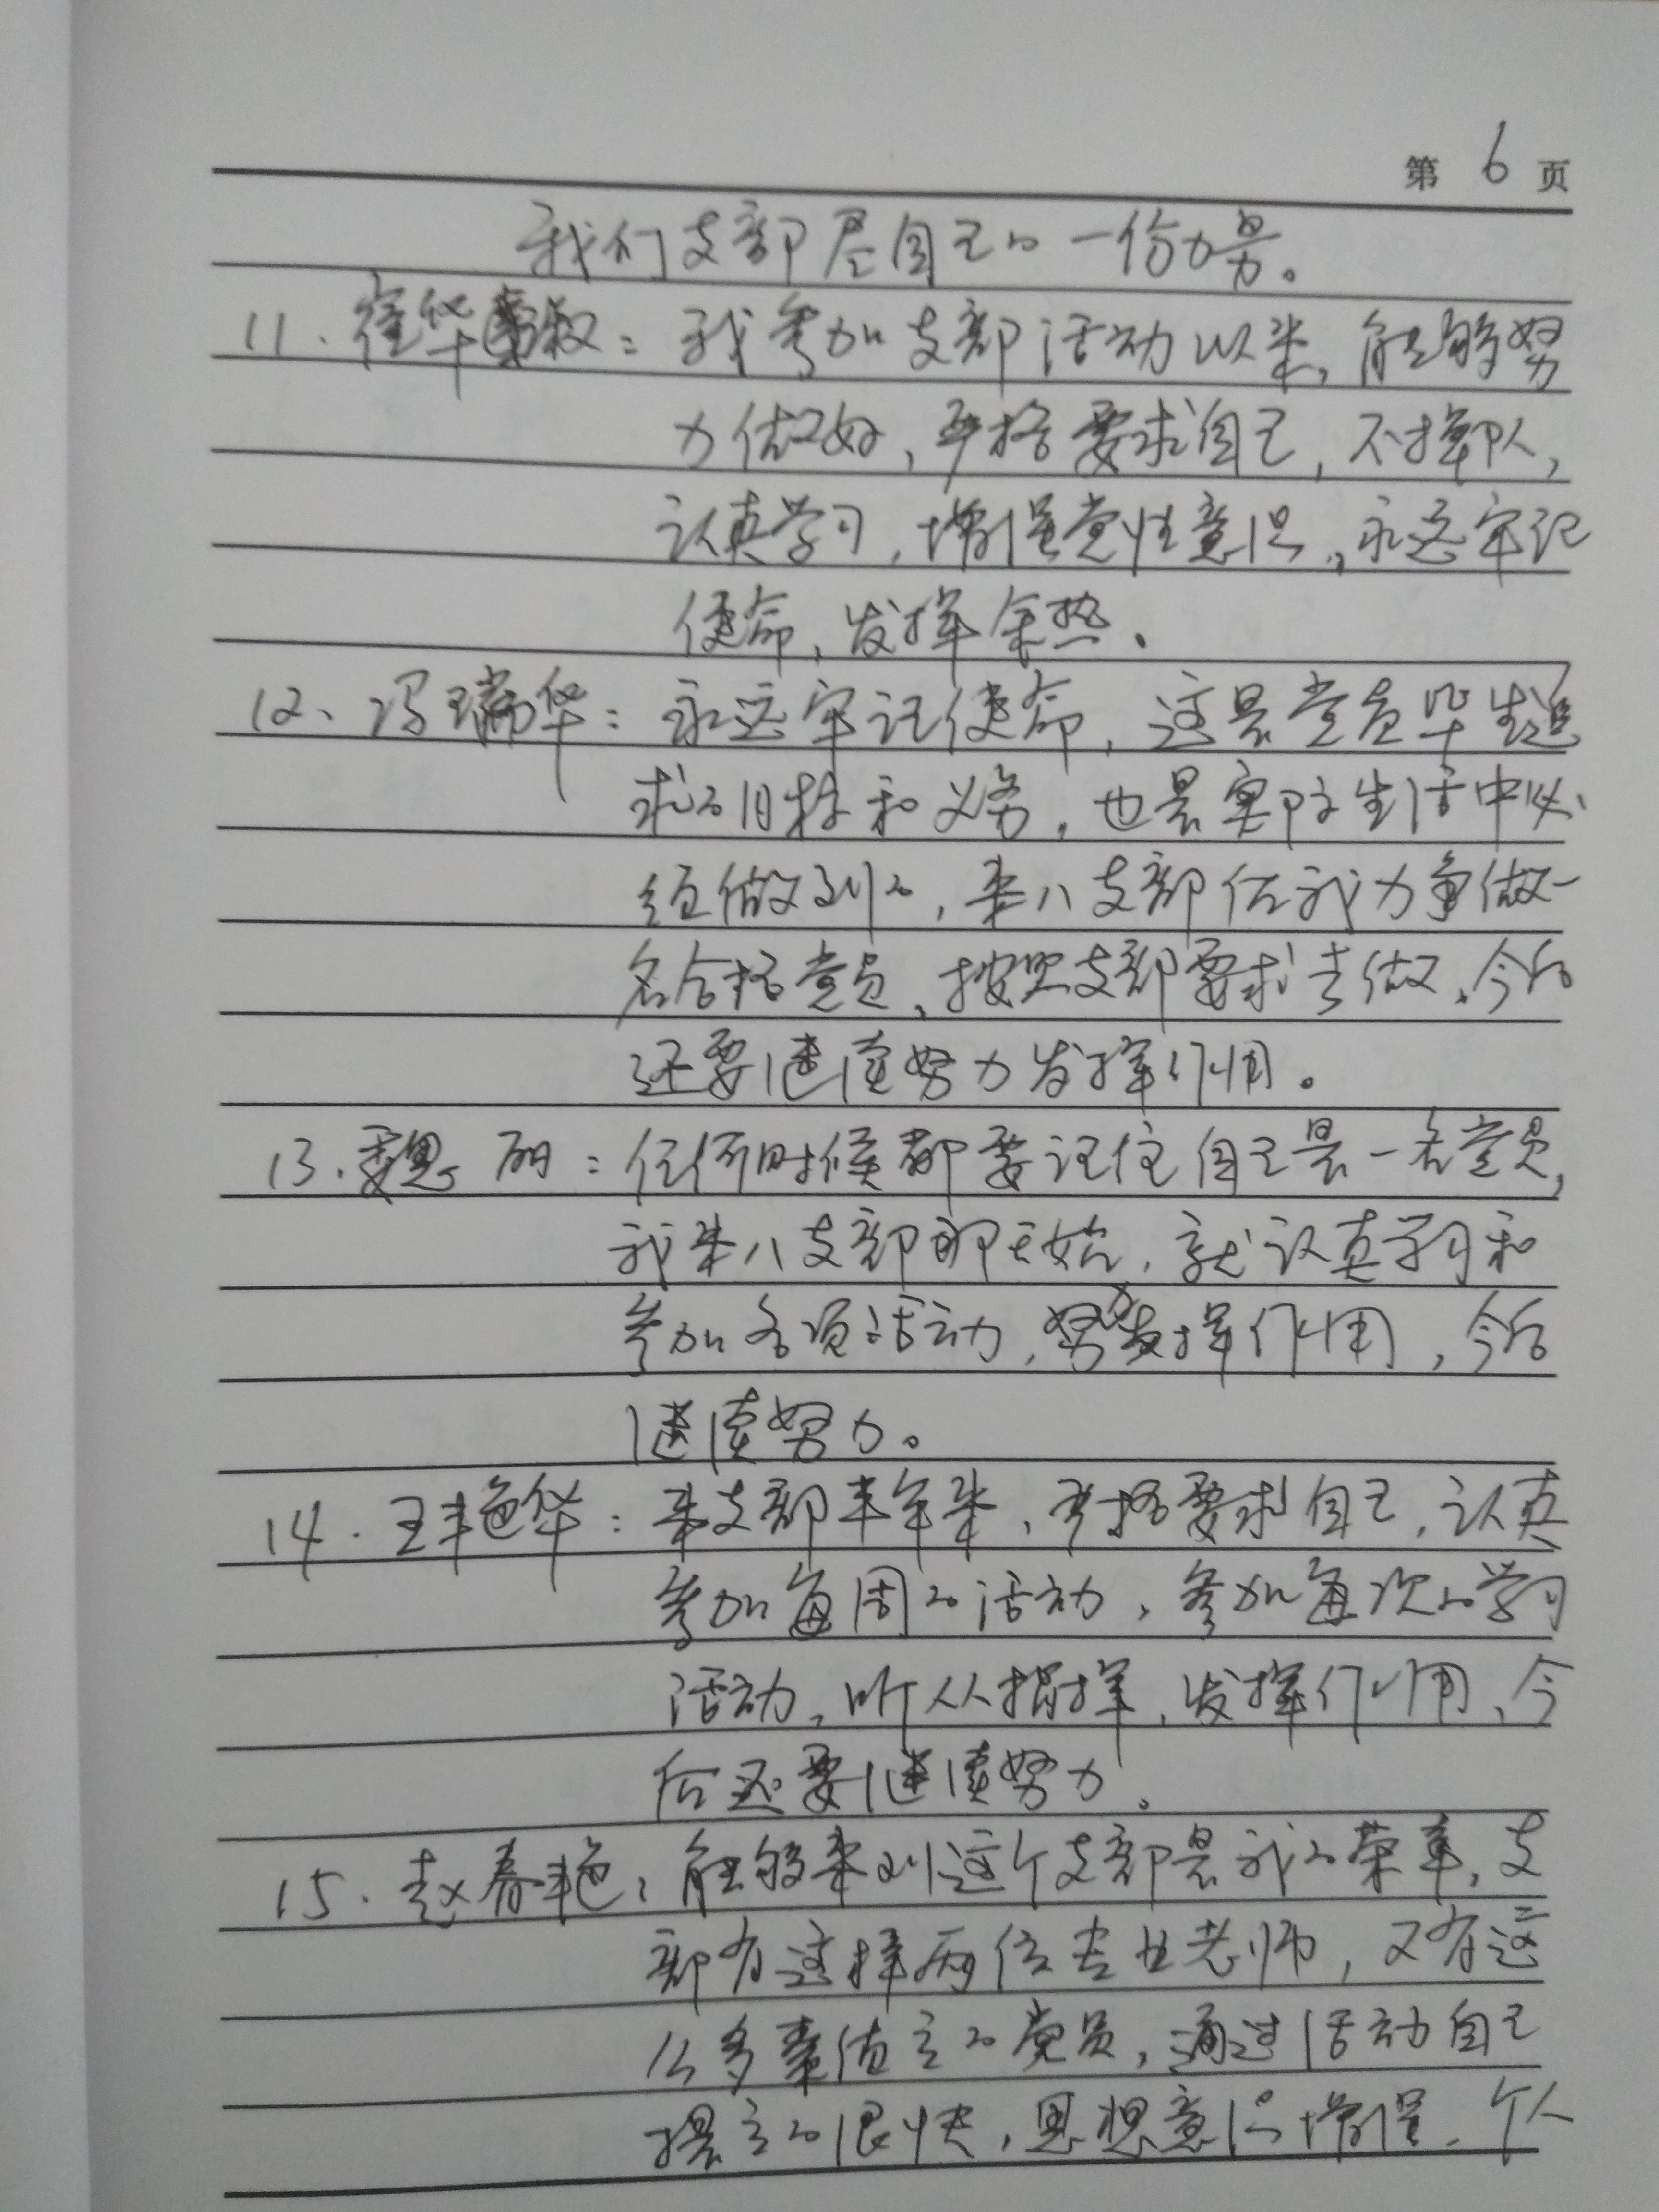 第 6 页
我们支部尽自己的一份力量。
11. 崔华淑：我参加支部活动以来，能够努
力做好，严格要求自己，不掉队，
认真学习，增强党性意识，永远牢记
使命，发挥余热。
12、冯瑞华：永远牢记使命，这是党员毕生追
求的目标和义务，也是实际生活中必
须做到的，来八支部后我力争做一
名合格党员，按照支部要求去做，今后
还要继续努力发挥作用。
13、魏 丽：任何时候都要记住自己是一名党员，
我来八支部那天始，就认真学习和
参加各项活动，努力发挥作用，今后
继续努力。
14. 王艳华：来支部半年来，严格要求自己，认真
参加每周的活动，参加每次的学习
活动，听从指挥，发挥作用，今
后还要继续努力。
15. 赵春艳：能够来到这个支部是我的荣幸，支
部有这样两位专业老师，又有这
么多素质高的党员，通过活动自己
提高的很快，思想意识增强，个人